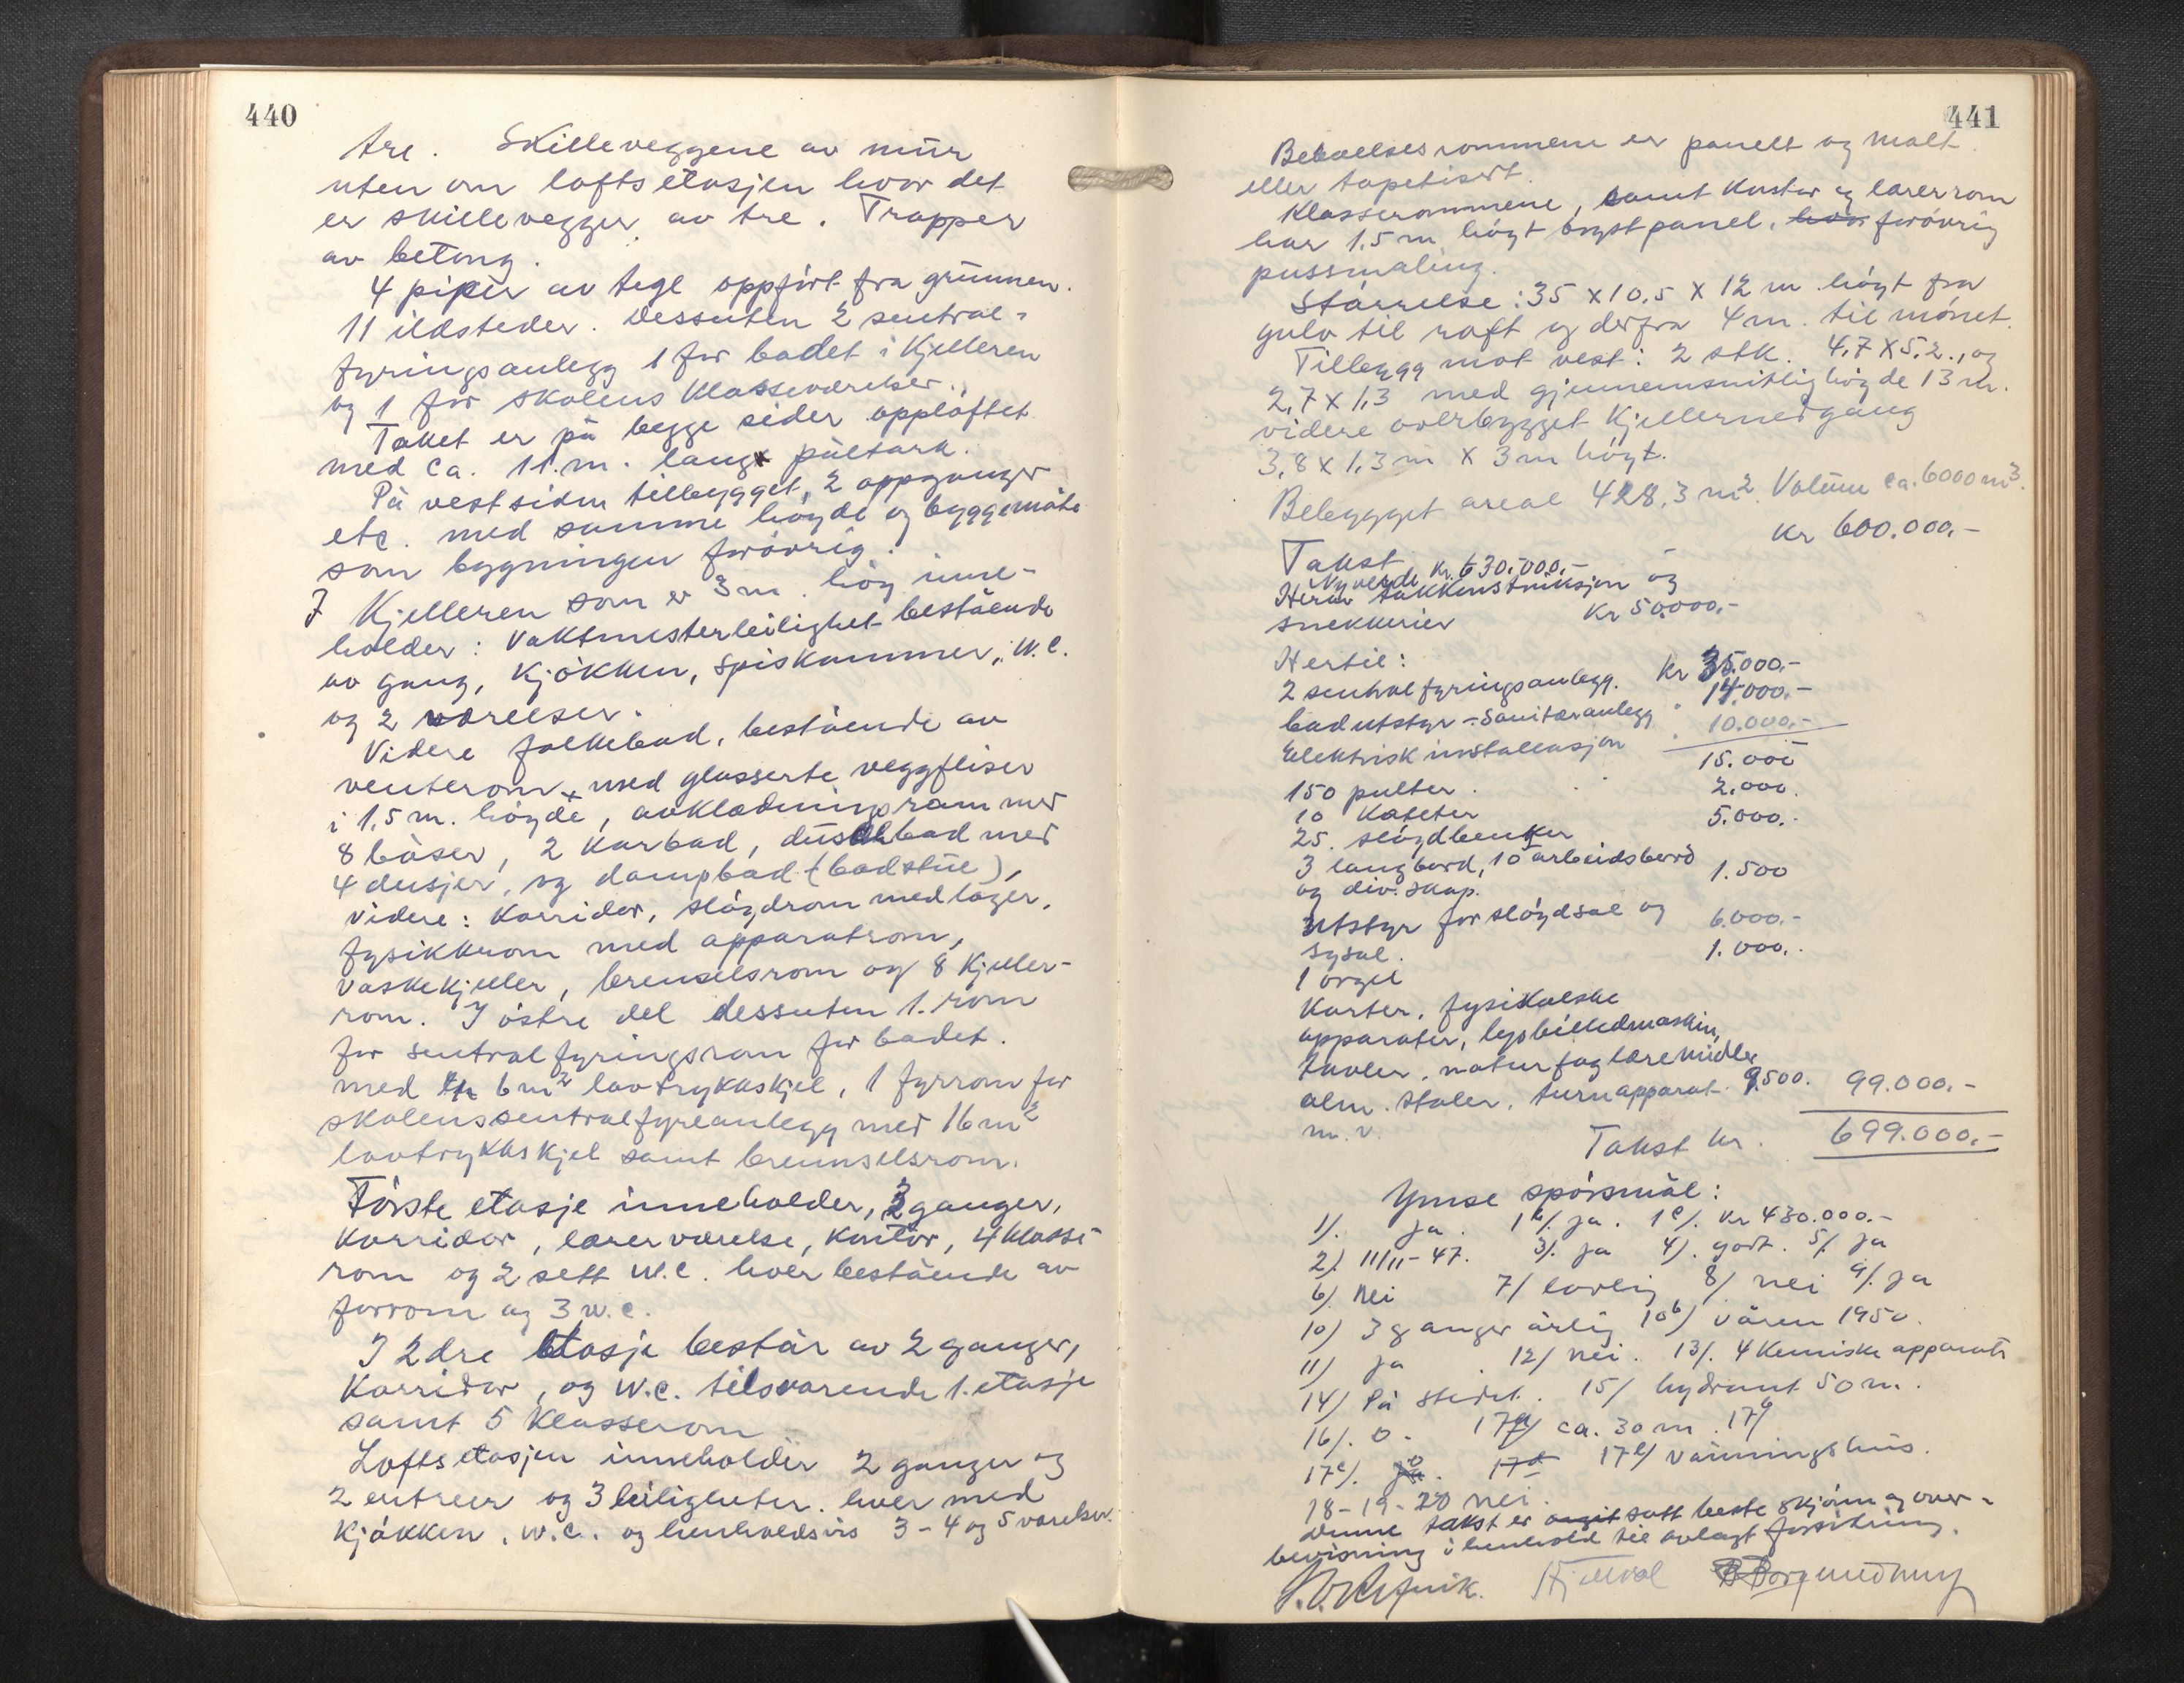 440
tre. Skilleveggene av mur
uten om loftsetasjen hvor det
er skillevegger av tre. Trapper
av betong.
4 piper av tegl oppført fra grunnen.
11 ildsteder. Dessuten 2 sentral-
fyringsanlegg 1 for badet i Kjelleren
og 1 for skolens Klasseværelser.
Taket er på begge sider oppløftet
med ca. 11.m. lang pultark.
På vestsiden tilbygget, 2 oppganger
etc. med samme høyde og byggemåte
som bygningen forøvrig.
I Kjelleren som er 3 m. høy inne-
holder: Vaktmesterleilighet bestående
av gang, Kjøkken, Spiskammer, W.C.
og 2 værelser.
Videre folkebad, bestående av
venterom, med glasserte veggfliser
i 1,5 m. høyde, avkledningsrom med
8 båser, 2 Karbad, dusjbad med
4 dusjer, og dampbad (badstue),
Videre: Korridor, sløydrom med lager,
fysikkrom med apparatrom,
Vaskekjeller, brenselsrom og 8 Kjeller-
rom. I østre del dessuten 1. rom
for sentralfyringsrom for badet.
med 6 m² lavtrykkskjel, 1 fyrrom for
skolenssentralfyreanlegg med 16 m²
lavtrykkskjel samt brennselsrom.
Første etasje inneholder, 2 ganger,
Korridor, lærerværelse, Kontor, 4 klasse-
rom og 2 sett W.C. hver bestående av
forrom og 3 w.c.
I 2dre Etasje består av 2 ganger,
Korridor, og W.C. tilsvarende 1. etasje
samt 5 Klasserom
Loftsetasjen inneholder 2 ganger og
2 entreer og 3 leiligheter. hver med
Kjøkken, w.c. og henholdsvis 3-4 og 5 værelser.
441
Beboelsesrommene er panelt og malt
eller tapetisert.
Klasserommene, samt Kontor og lærerrom
har 1.5 m høyt brystpanel, forøvrig
pussmaling.
Størrelse: 35 x 10,5 x 12 m høyt fra
gulv til raft og derfra 4 m. til mønet.
Tillegg mot vest: 2 stk. 4,7 x 5,2., og
2,7 x 1,3 med gjennemsnitlig høyde 13 m.
videre overbygget Kjellernedgang
3,8 x 1,3 m x 3 m høyt.
Bebygget areal 428,3 m². Volum ca. 6000 m³.
Takst Kr 600.000,-
Nyverdi Kr. 630.000,-
Herav takkonstruksjon og
snekkerier Kr 50.000,-
Hertil:
2 sentralfyringsanlegg. Kr 35.000,-
badutstyr - Sanitæranlegg " 14.000,-
Elektrisk installasjon " 10.000,-
150 pulter. 15.000
10 Kateter 2.000.
25. sløydbenker 5.000.-
3 langbord, 10 arbeidsbord
og div. skap. 1.500
Utstyr for sløydsal og
sysal. 6.000.-
1 orgel 1.000.-
Karter, fysikalske
apparater, lysbilledmaskin,
tavler, naturfaglæremidler
alm. stoler, turnapparat. 9.500. 99.000.-
m.v.
Takst kr. 699.000,-
Ymse spørsmål:
1). Ja. 1b/. ja. 1c/. Kr 430.000.-
2). 11/11-47. 3). ja 4). godt. 5/. ja
6/. Nei 7/ lovlig 8/ nei 9/. ja
10) 3 ganger årlig 10b) Våren 1950.
11) ja. 12/ nei. 13/. 4 Kemiske apparater
14) På stedet. 15/ hydrant 50 m.
16/. 0. 17a/ ca. 30 m. 17b/
17c/. 17d 17e/ Våningshus.
18-19-20 nei.
Denne takst er avgitt satt beste skjønn og over-
bevisning i henhold til avlagt forsikring.